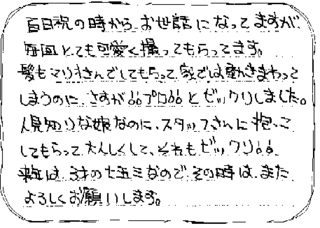 百日祝の時から、お世話になってますが、
毎回とても可愛く撮ってもらってます。
髪もマリオさんでしてもらって、家では動きまわって
しまうのに、さすが。。プロ。。とビックリしました。
人見知りな娘なのに、スタッフさんに抱っこ
してもらって大人しくして、それもビックリ。。
は、3才の七五三なので、その時は、また
よろしくお願いします。